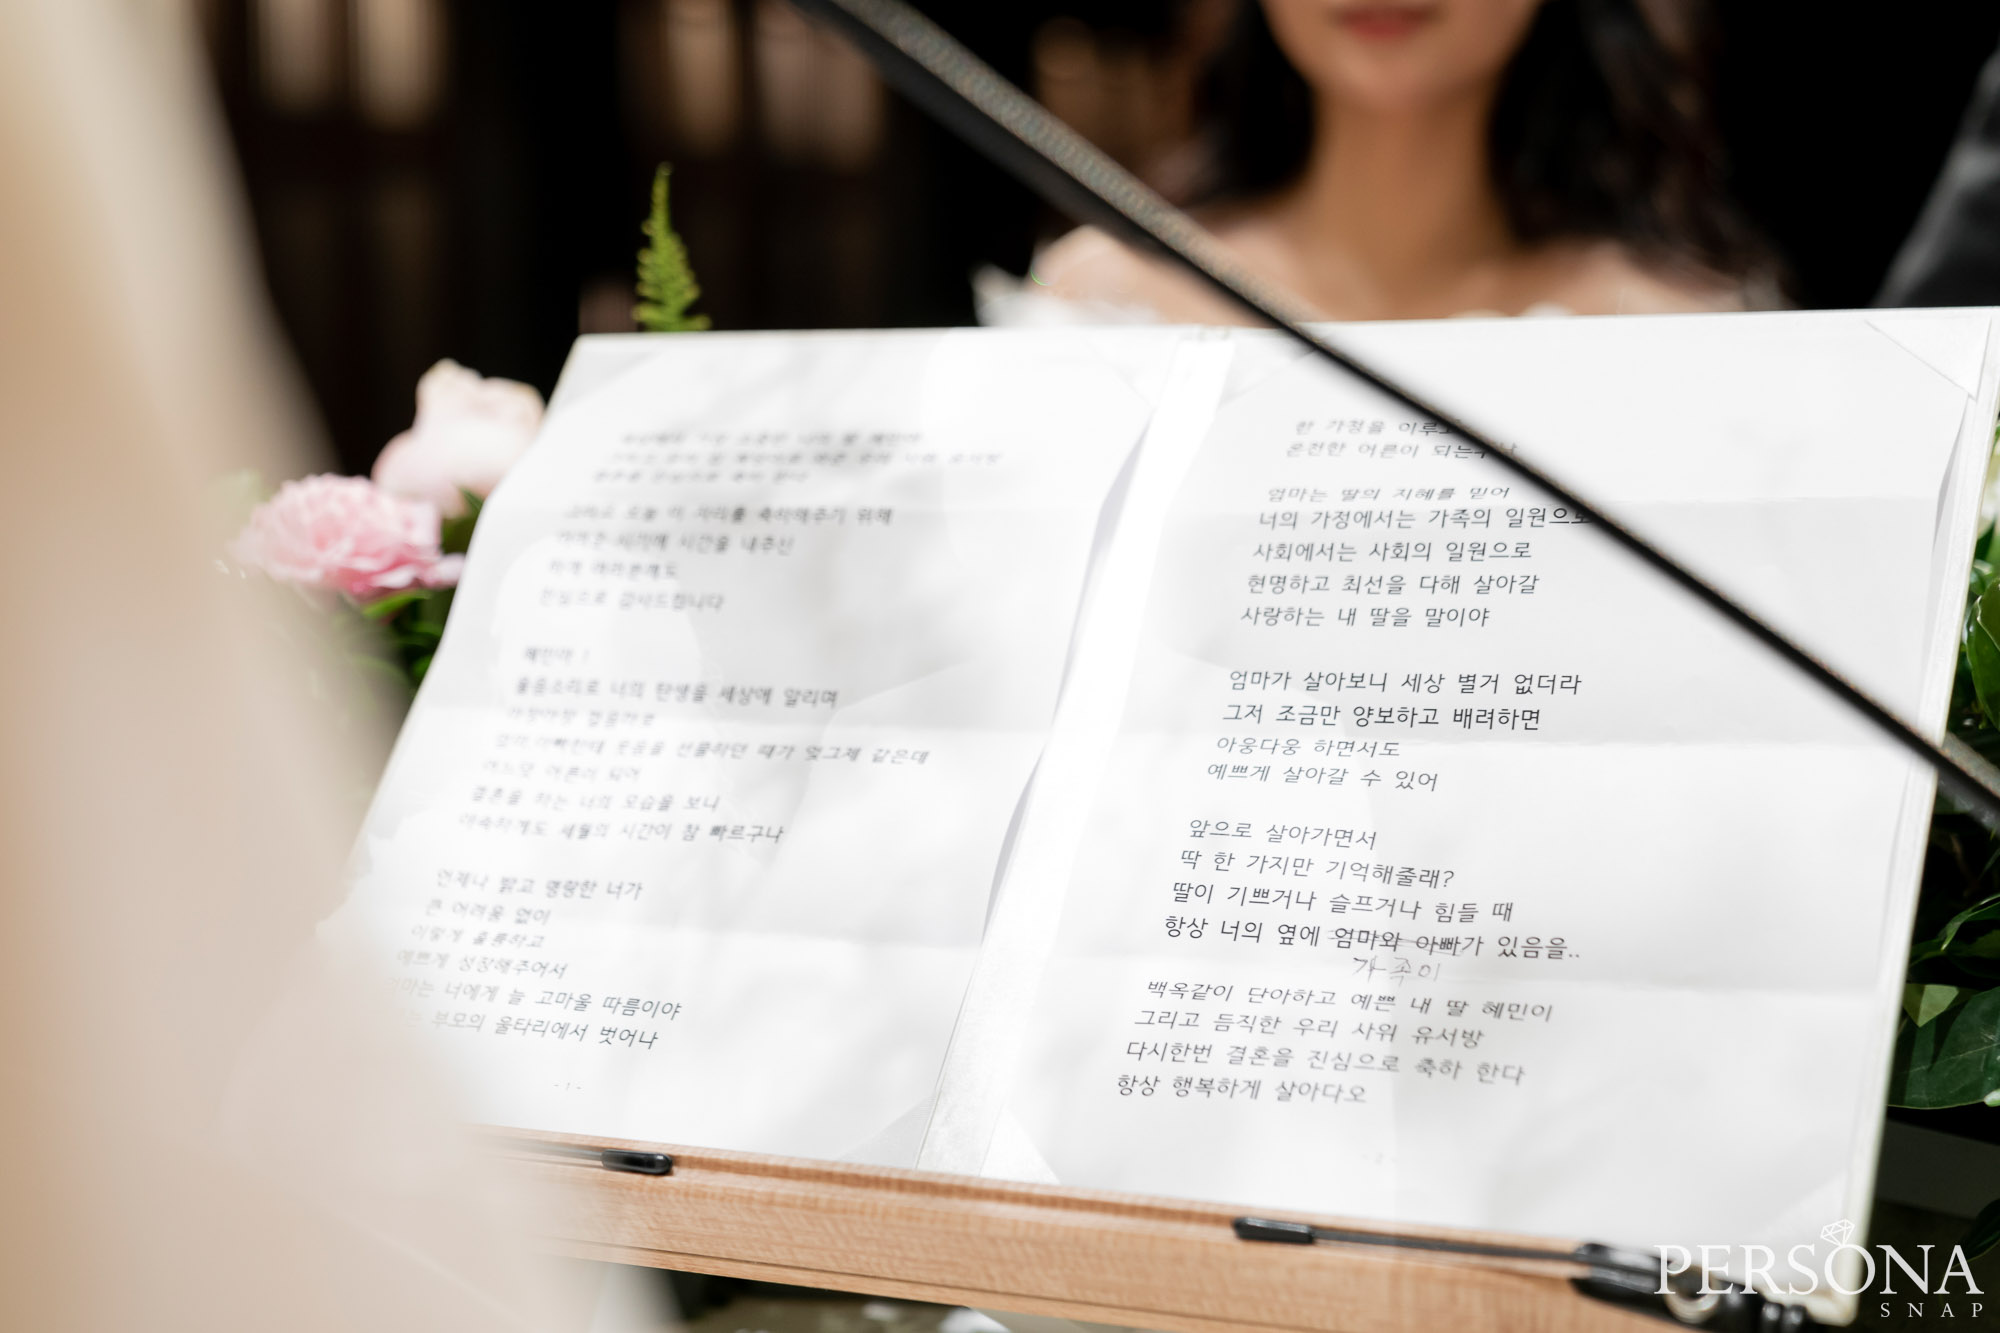 그리고 오늘 이 자리를 축하해주기 위해
시간을 내주신
하객 여러분께도
진심으로 감사드립니다
혜민아 !
울음소리로 너의 탄생을 세상에 알리며
아장아장 걸음마로
엄마 아빠한테 웃음을 선물하던 때가 엊그제 같은데
어느덧 어른이 되어
결혼을 하는 너의 모습을 보니
야속하게도 세월의 시간이 참 빠르구나
언제나 밝고 명랑한 너가
큰 어려움 없이
이렇게 훌륭하고
예쁘게 성장해주어서
엄마는 너에게 늘 고마울 따름이야
부모의 울타리에서 벗어나
- 1 -
한 가정을 이루고
온전한 어른이 되는 날
엄마는 딸의 지혜를 믿어
너의 가정에서는 가족의 일원으로
사회에서는 사회의 일원으로
현명하고 최선을 다해 살아갈
사랑하는 내 딸을 말이야
엄마가 살아보니 세상 별거 없더라
그저 조금만 양보하고 배려하면
아웅다웅 하면서도
예쁘게 살아갈 수 있어
앞으로 살아가면서
딱 한 가지만 기억해줄래?
딸이 기쁘거나 슬프거나 힘들 때
항상 너의 옆에 엄마와 아빠가 있음을..
가족이
백옥같이 단아하고 예쁜 내 딸 혜민이
그리고 듬직한 우리 사위 유서방
다시한번 결혼을 진심으로 축하 한다
항상 행복하게 살아다오
- 2 -
PERSONA
SNAP